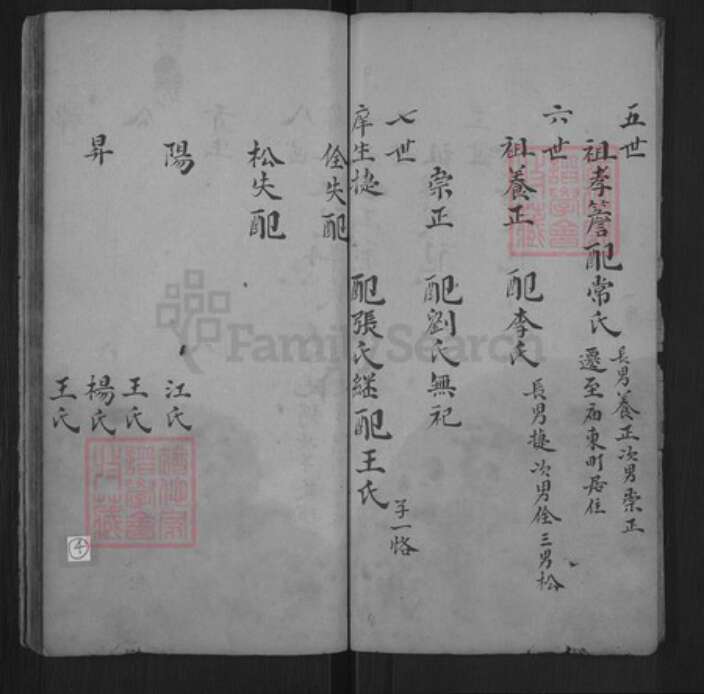 五世
祖孝簷配常氏
長男養正次男崇正
遷至府東町居住
六世
祖養正 配李氏
長男捷次男佺三男松
崇正 配劉氏無祀
七世
庠生捷 配張氏継配王氏
子一恪
佺失配
松失配
陽 江氏
王氏
昇 楊氏
王氏
④
FamilySearch